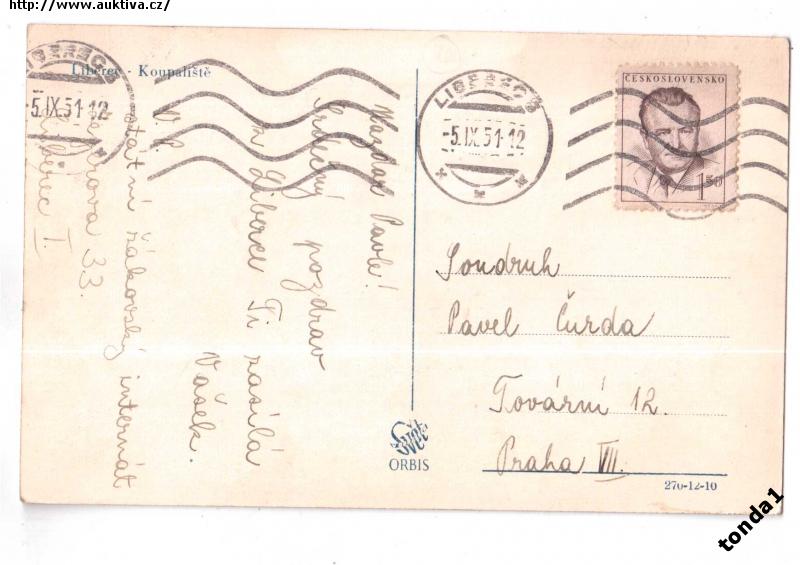 http://www.auktiva.cz/
Liberec - Koupaliště
LIBEREC
-5.IX.51-12
Nazdar Pavle!
Srdečný pozdrav
z Liberce Ti zasílá
Vašek.
V. P.
státní žákovský internát
33.
Liberec I.
LIBEREC
-5.IX.51-12
ČESKOSLOVENSKO
1.50
Soudruh
Pavel Čurda
Tovární 12.
Praha VII.
Svět
ORBIS
270-12-10
tonda1